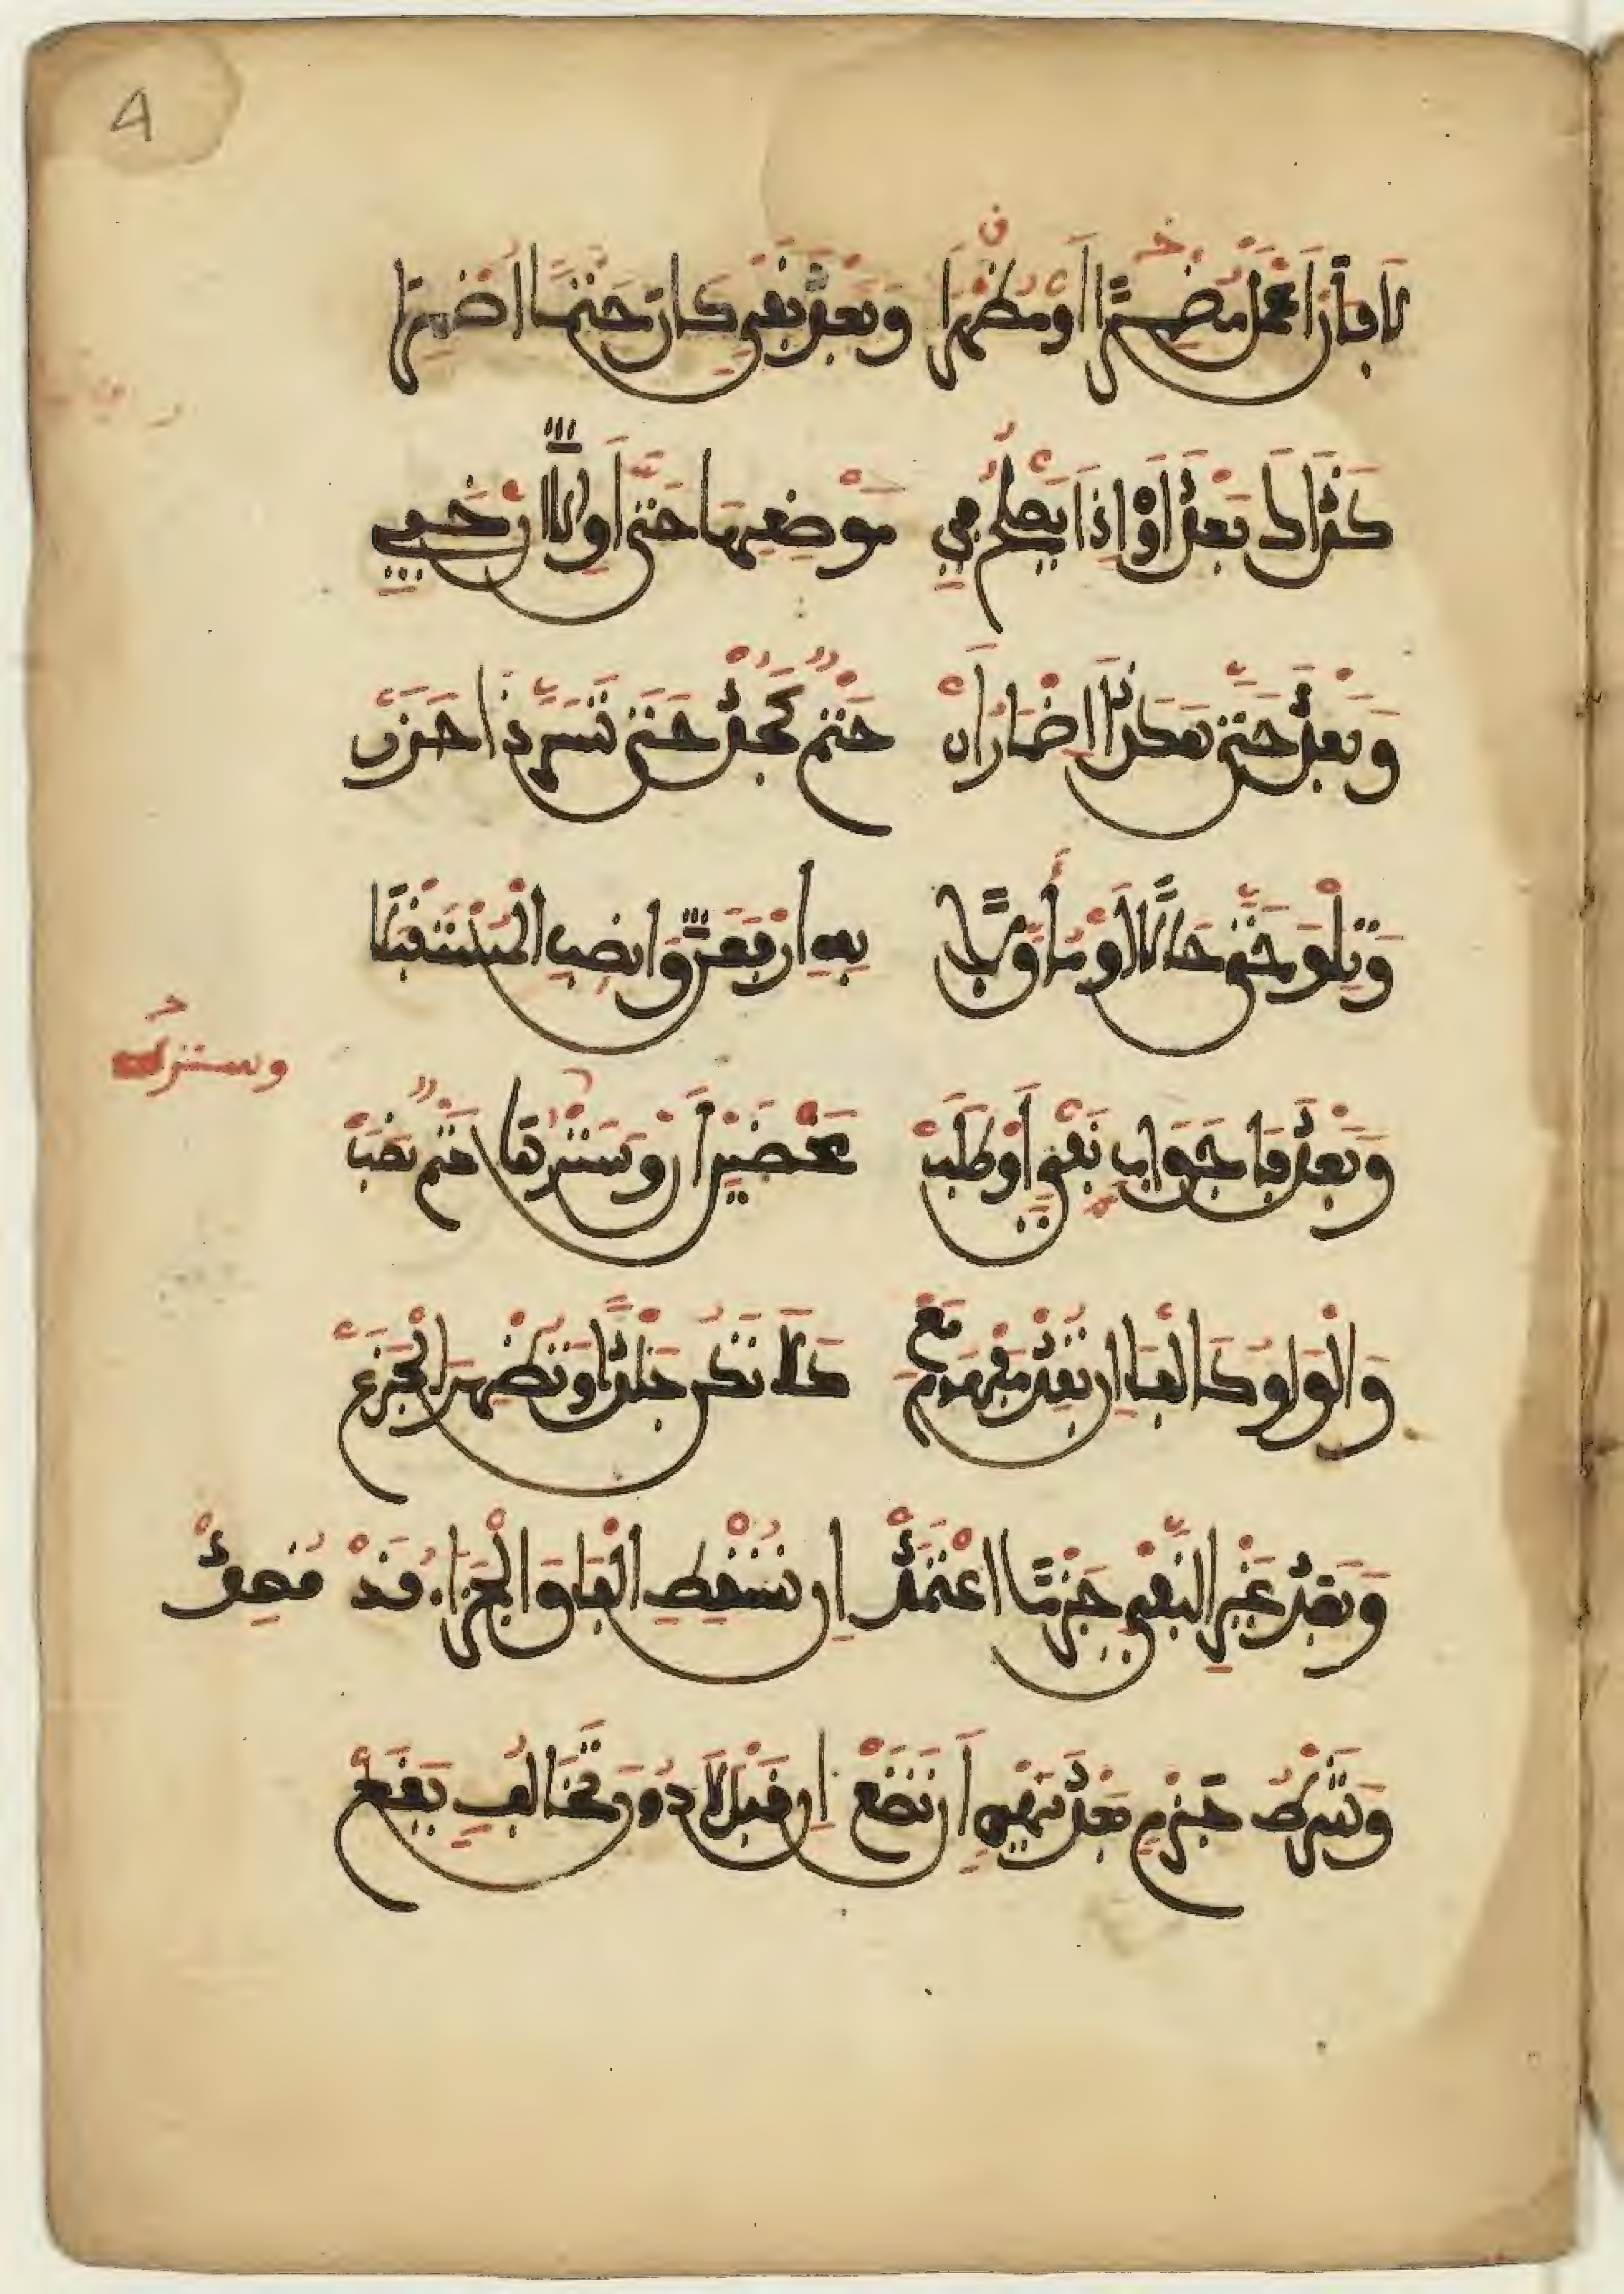 4
لَا فَأَنَ اعْمِلْ مُضْمِرًا أَوْ مُظْهِرَا وَبَعْدَ نَفْيِ كَانَ حَتْمًا أُضْمِرَا
كَذَاكَ بَعْدَ أَوْ إِذَا يَصْلُحُ فِي مَوْضِعِهَا حَتَّى أَوِ الَّا أَنْ خَفِي
وَبَعْدَ حَتَّى هَكَذَا إِضْمَارُ أَنْ حَتْمٌ كَجُدْ حَتَّى تَسُرَّ ذَا حَزَنْ
وَتِلْوَ حَتَّى حَالًا أَوْ مُأَوَّلَا بِهِ ارْفَعَنَّ وَانْصِبِ الْمُسْتَقْبَلَا
وَسَتْرُهُ
وَبَعْدَ فَا جَوَابِ نَفْيٍ أَوْ طَلَبْ مَحْضَيْنِ أَنْ وَسَتْرُهَا حَتْمٌ نَصَبْ
وَالْوَاوُ كَالْفَا إِنْ تُفِدْ مَفْهُومَ مَعْ كَلَا تَكُنْ جَلْدًا وَتُظْهِرَ الْجَزَعْ
وَبَعْدَ غَيْرِ النَّفْيِ جَزْمًا اعْتَمِدْ إِنْ تُسْقِطِ الْفَا وَالْجَزَاءُ قَدْ قُصِدْ
وَشَرْطُ جَزْمٍ بَعْدَ نَهْيٍ أَنْ تَضَعْ إِنْ قَبْلَ لَا دُونَ تَخَالُفٍ يَقَعْ